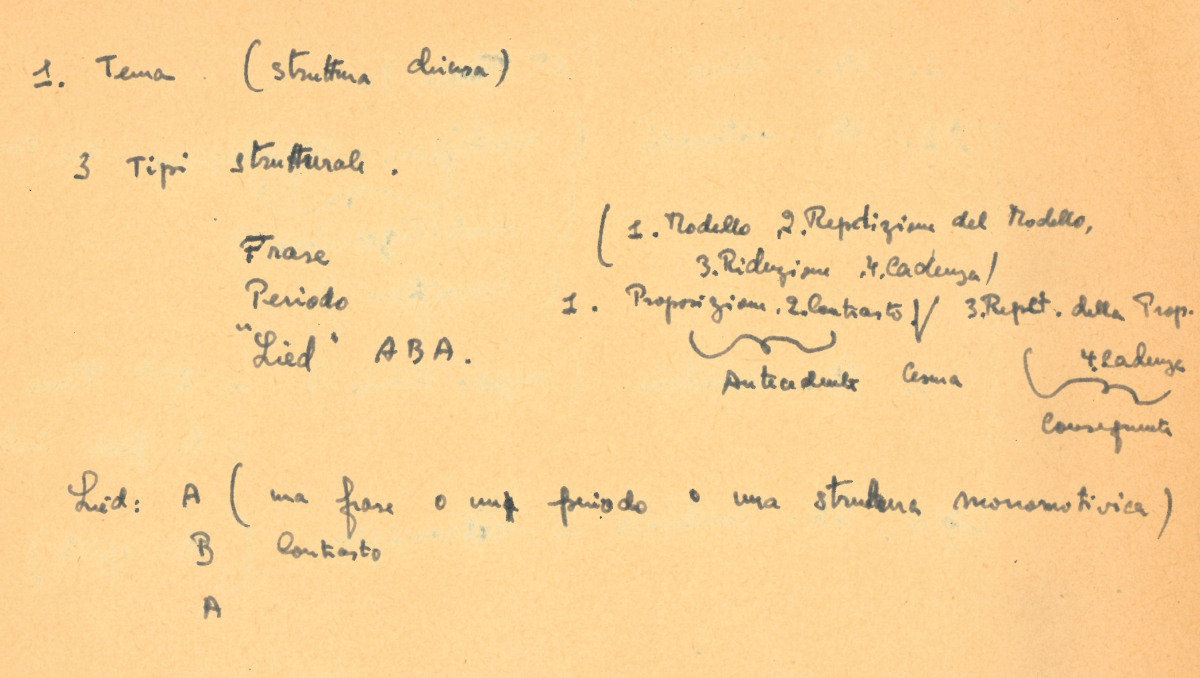 1. Tema (struttura chiusa)
3 Tipi strutturale.
Frase (1. Modello, 2. Repetizione del Modello,
3. Riduzione, 4. Cadenza)
Periodo 1. Proposizione, 2. Contrasto, √ 3. Repet. della Prop.
"Lied" ABA. 4. Cadenza
Antecedente Cesura
Conseguente
Lied: A (una frase o un periodo o una struttura monomotivica)
B Contrasto
A